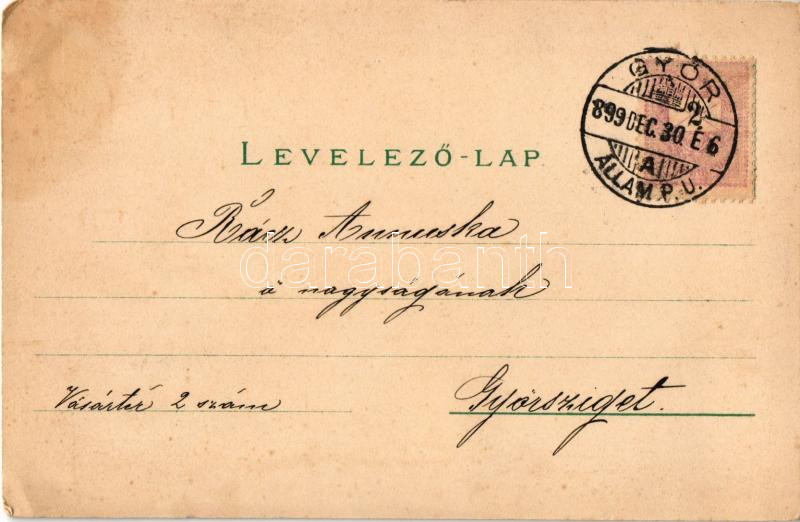 GYŐR
2
899 DEC. 30. É 6
A
ÁLLAM P. U.
LEVELEZŐ-LAP
Rácz Annuska
ő nagyságának
darabanth
Vásártér 2 szám
Győrsziget.